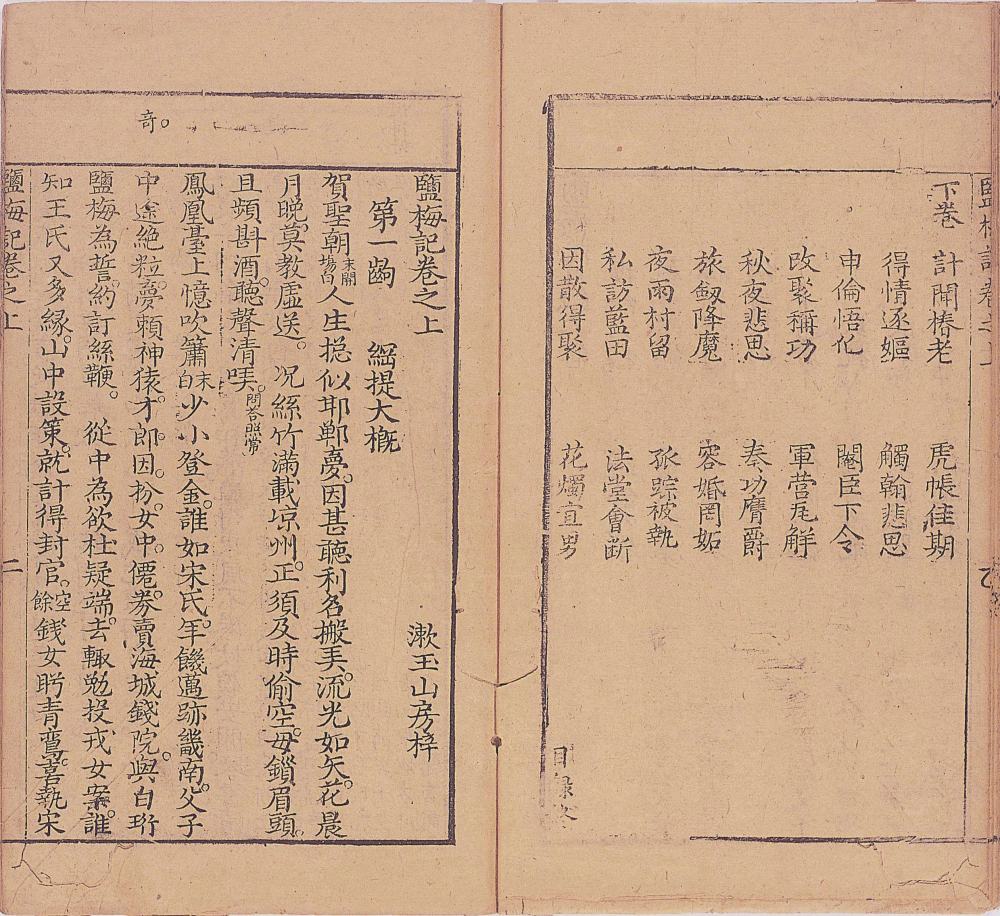 下卷 計聞椿老 虎帳佳期
得情逐嫗 觸翰悲思
申倫悟化 閹臣下令
改聚稱功 軍营尾觧
秋夜悲思 奏功膺爵
旅劔降魔 容婚罔妬
夜雨村留 孤踪被執
私訪藍田 法堂會断
因散得聚 花燭宜男
目錄
鹽梅記卷之上 漱玉山房梓
第一齣 綱提大概
賀聖朝末開場白人生揔似耶鄲夢。因甚聽利名搬美。流光如矢。花晨
月晚。莫教虛送。 况絲竹滿載凉州。正須及時偷空。毋鎖眉頭。
且頻斟酒。聽聲清唛。問荅照常
鳳凰臺上憶吹簫末白少小登金。誰如宋氏。年饑邁跡畿南。父子
中途絶粒。夣賴神猿。才郎。因。扮。女中。僊。券賣海城錢院。與白珩
鹽梅為誓。約訂絲鞭。 從中為欲杜疑端。去輙勉投戎女案。誰
知王氏又多緣。山中設策。就計得封官。空餘錢女盻青鸞。喜執宋
奇。
鹽梅記卷之上 二